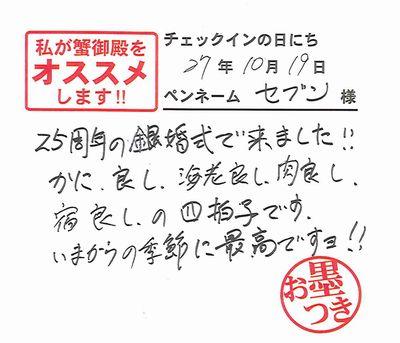 私が蟹御殿を
オススメ
します!!
チェックインの日にち
27年10月19日
ペンネーム セブン 様
25周年の銀婚式で来ました!!
かに、良し、海老良し、肉良し、
宿良し、の四拍子です、
いまからの季節に最高ですヨ!!
お墨
つき